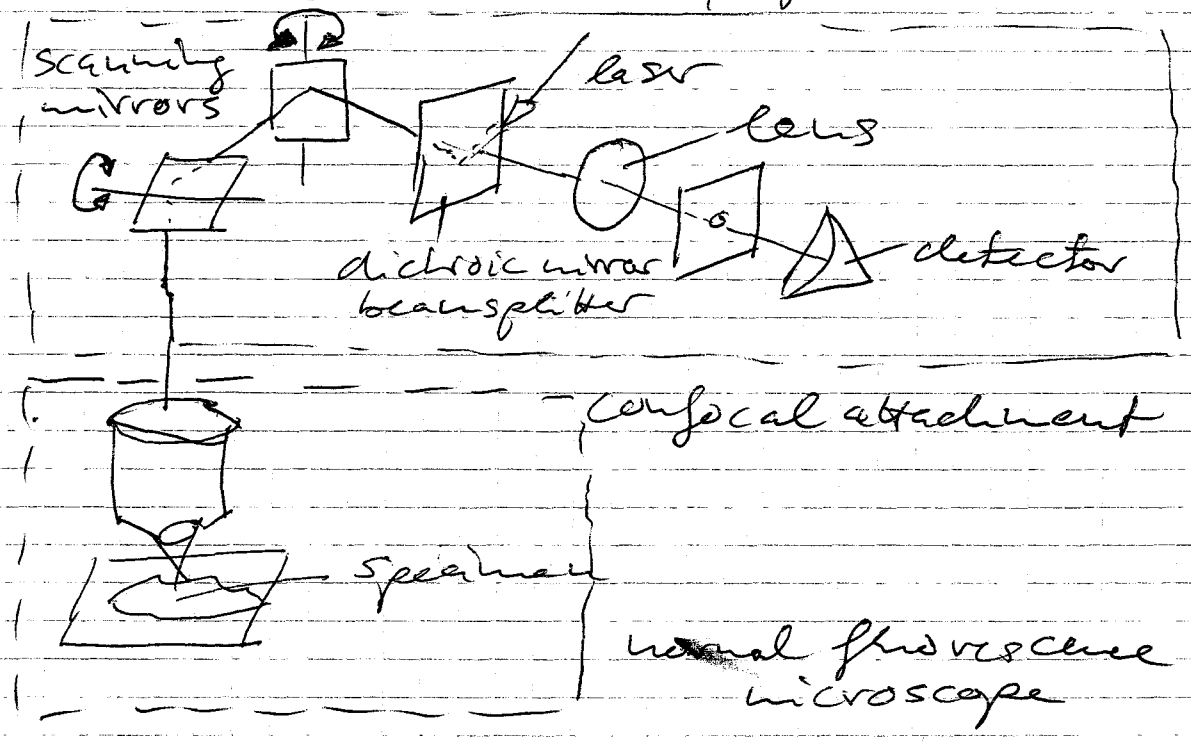 scanning
mirrors
laser
lens
dichroic mirror
beamsplitter
detector
confocal attachment
specimen
normal fluorescence
microscope